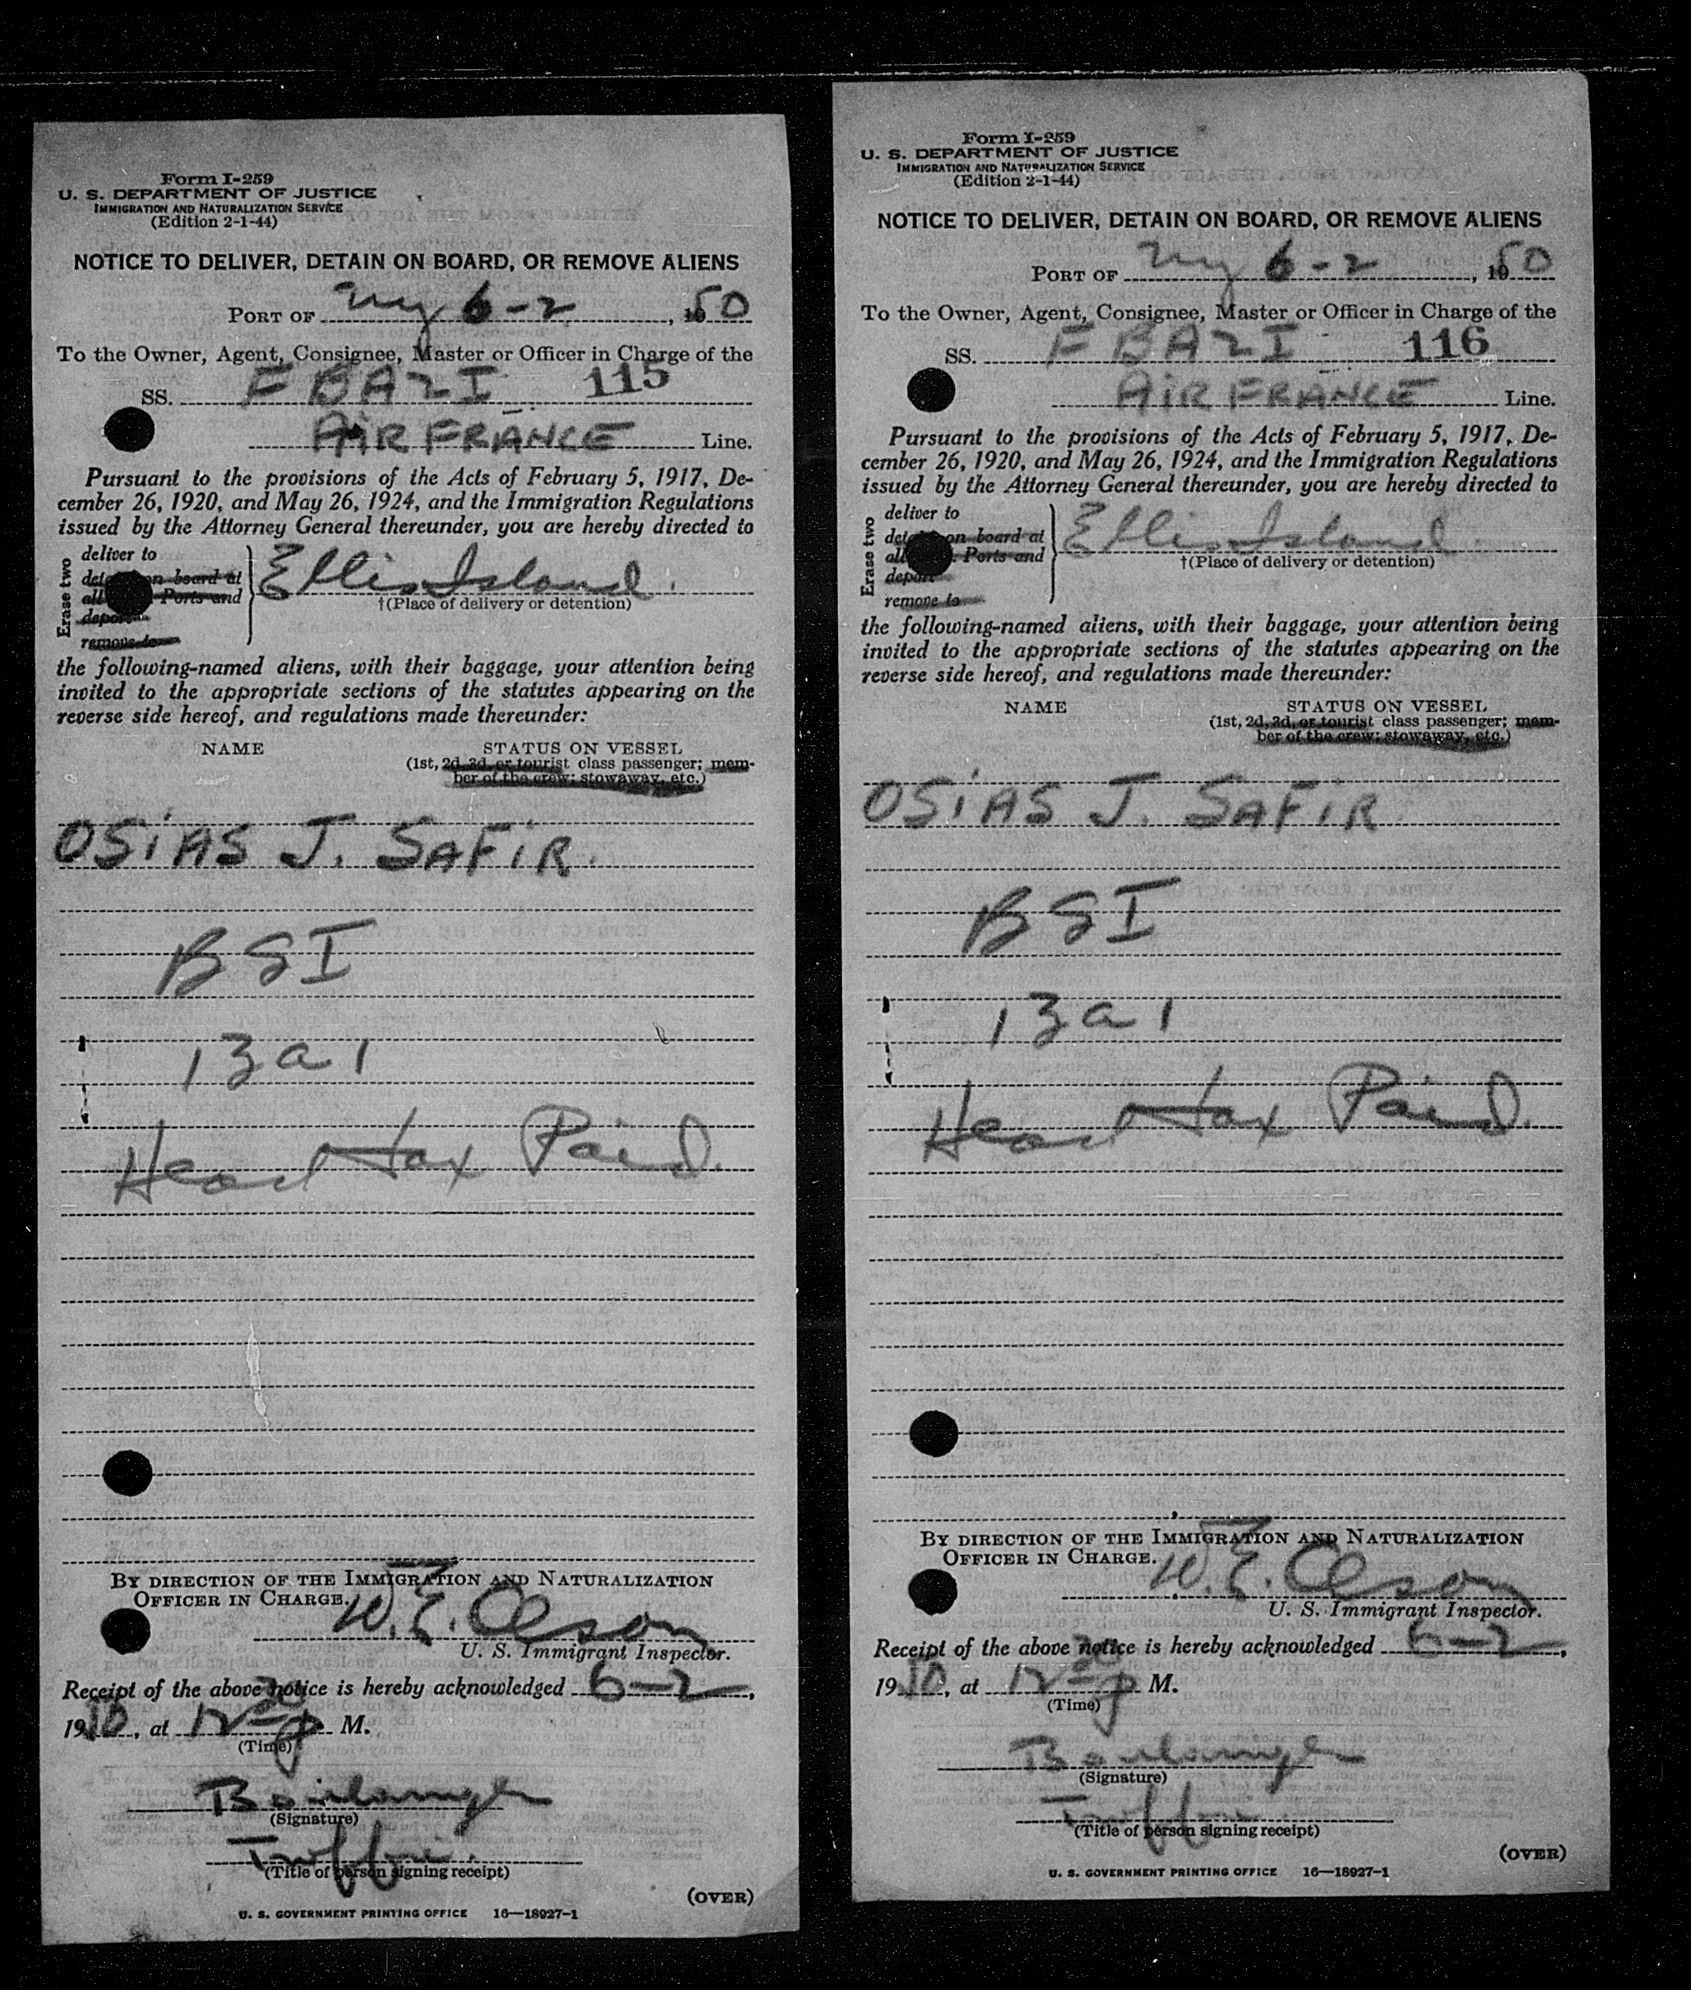 Form I-259
U. S. DEPARTMENT OF JUSTICE
IMMIGRATION AND NATURALIZATION SERVICE
(Edition 2-1-44)
NOTICE TO DELIVER, DETAIN ON BOARD, OR REMOVE ALIENS
PORT OF NY 6-2, 1950
To the Owner, Agent, Consignee, Master or Officer in Charge of the
SS. F BAZI 115
AIR FRANCE Line.
Pursuant to the provisions of the Acts of February 5, 1917, De-
cember 26, 1920, and May 26, 1924, and the Immigration Regulations
issued by the Attorney General thereunder, you are hereby directed to
Erase two
deliver to
on board at
all Ports and
deport
remove to
Ellis Island.
†(Place of delivery or detention)
the following-named aliens, with their baggage, your attention being
invited to the appropriate sections of the statutes appearing on the
reverse side hereof, and regulations made thereunder:
NAME STATUS ON VESSEL
(1st, 2d, 3d, or tourist class passenger; mem-
ber of the crew; stowaway, etc.)
OSIAS J. SAFIR.
BSI
13a1
Head tax Paid.
BY DIRECTION OF THE IMMIGRATION AND NATURALIZATION
OFFICER IN CHARGE.
W. E. Olson
U. S. Immigrant Inspector.
Receipt of the above notice is hereby acknowledged 6-2,
1950, at M.
(Time)
Boulanger
(Signature)
(Title of person signing receipt)
(OVER)
U. S. GOVERNMENT PRINTING OFFICE 16—18927-1
Form I-259
U. S. DEPARTMENT OF JUSTICE
IMMIGRATION AND NATURALIZATION SERVICE
(Edition 2-1-44)
NOTICE TO DELIVER, DETAIN ON BOARD, OR REMOVE ALIENS
PORT OF NY 6-2, 1950
To the Owner, Agent, Consignee, Master or Officer in Charge of the
SS. F BAZI 116
AIR FRANCE Line.
Pursuant to the provisions of the Acts of February 5, 1917, De-
cember 26, 1920, and May 26, 1924, and the Immigration Regulations
issued by the Attorney General thereunder, you are hereby directed to
Erase two
deliver to
on board at
all Ports and
deport
remove to
Ellis Island.
†(Place of delivery or detention)
the following-named aliens, with their baggage, your attention being
invited to the appropriate sections of the statutes appearing on the
reverse side hereof, and regulations made thereunder:
NAME STATUS ON VESSEL
(1st, 2d, 3d, or tourist class passenger; mem-
ber of the crew; stowaway, etc.)
OSIAS J. SAFIR
BSI
13a1
Head tax Paid.
BY DIRECTION OF THE IMMIGRATION AND NATURALIZATION
OFFICER IN CHARGE.
W. E. Olson
U. S. Immigrant Inspector.
Receipt of the above notice is hereby acknowledged 6-2,
1950, at M.
(Time)
Boulanger
(Signature)
(Title of person signing receipt)
(OVER)
U. S. GOVERNMENT PRINTING OFFICE 16—18927-1